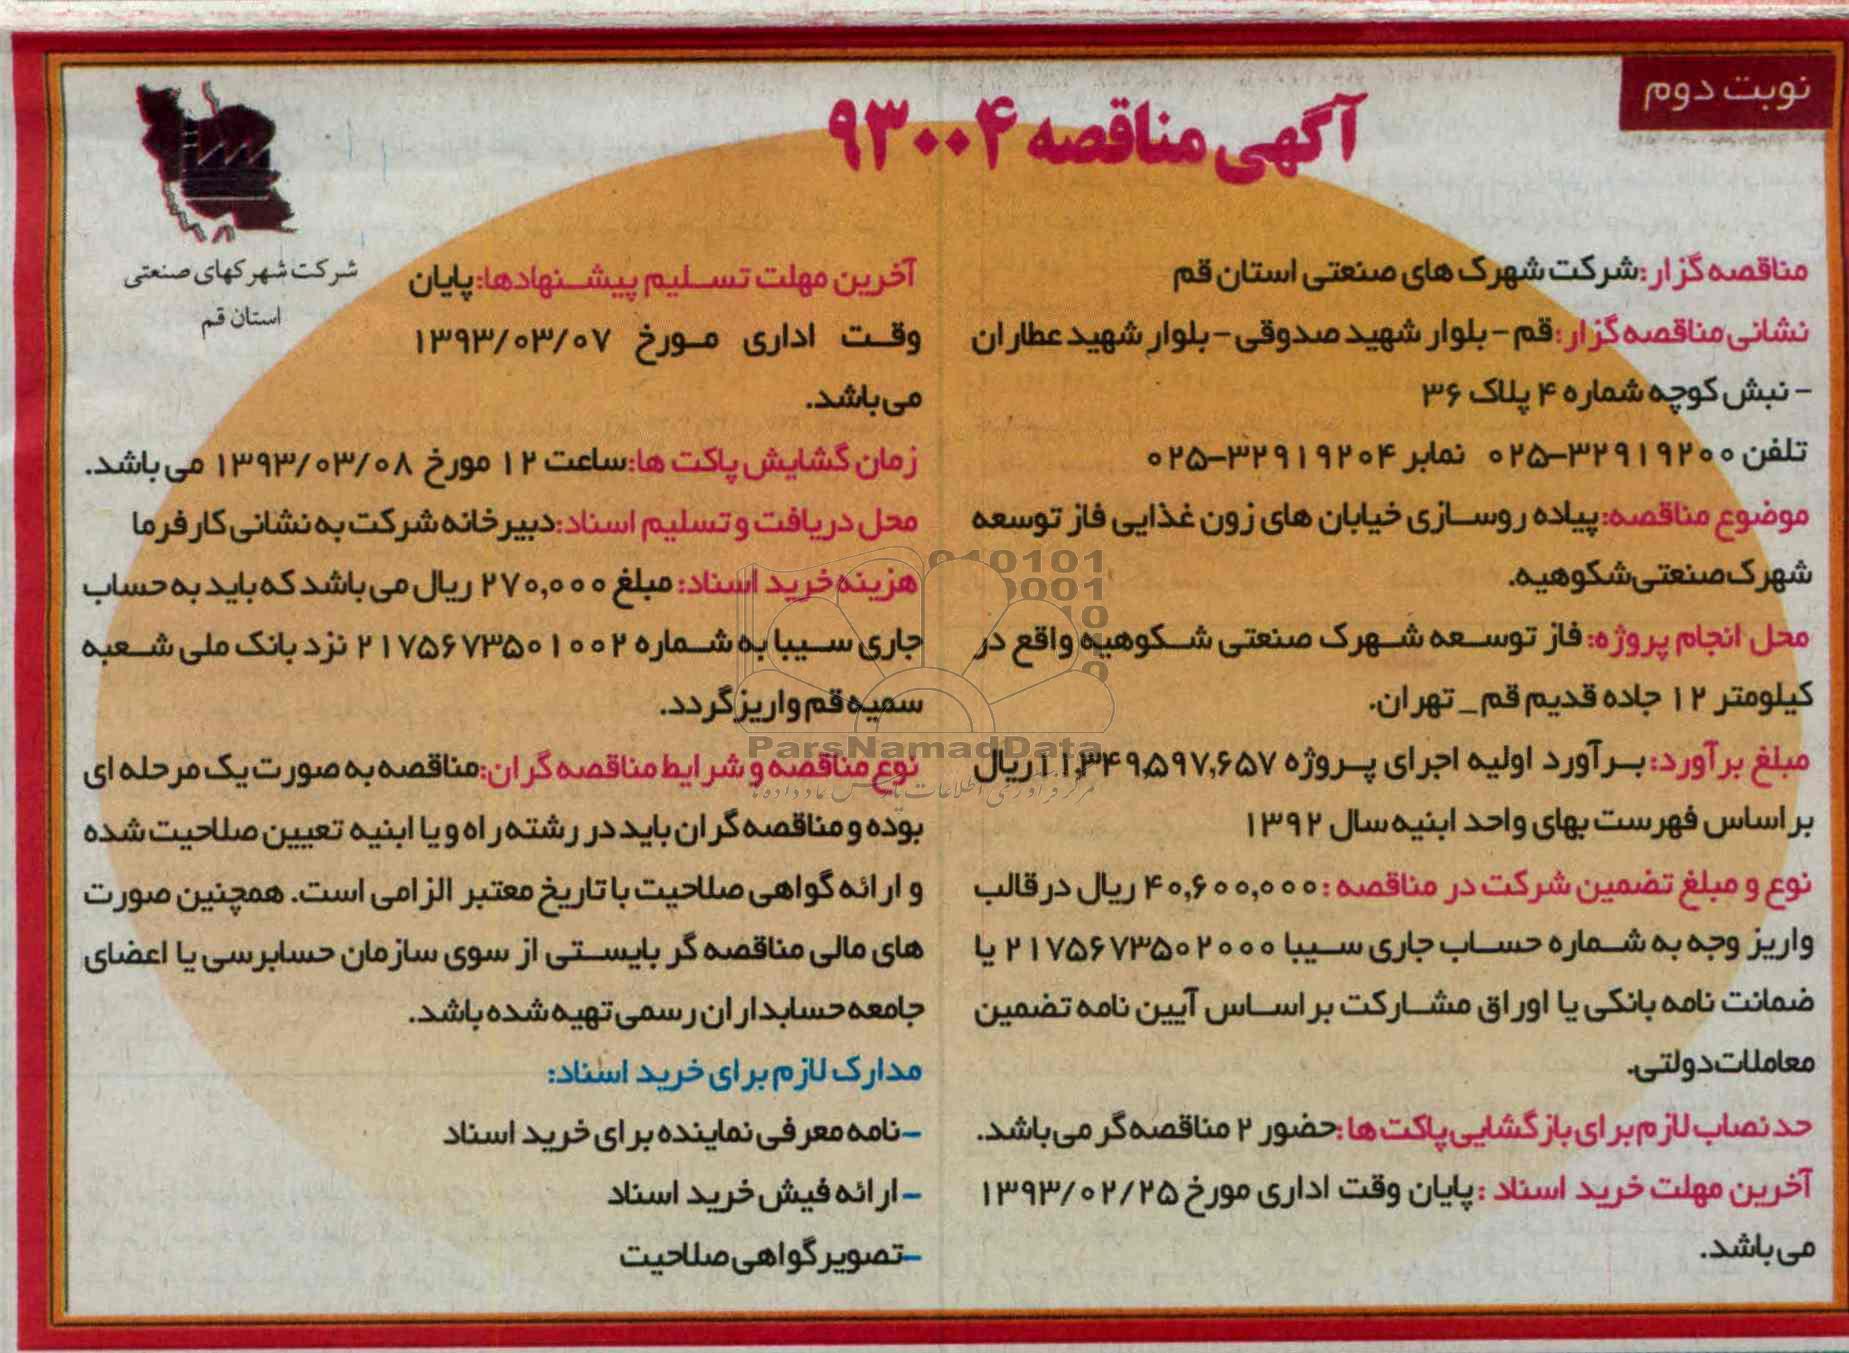 نوبت دوم
آگهی مناقصه ۹۳۰۰۴
شرکت شهرکهای صنعتی
استان قم
مناقصه گزار: شرکت شهرک های صنعتی استان قم
نشانی مناقصه گزار: قم - بلوار شهید صدوقی - بلوار شهید عطاران
- نبش کوچه شماره ۴ پلاک ۳۶
تلفن ۳۲۹۱۹۲۰۰-۰۲۵ نمابر ۳۲۹۱۹۲۰۴-۰۲۵
موضوع مناقصه: پیاده روسازی خیابان های زون غذایی فاز توسعه
شهرک صنعتی شکوهیه.
محل انجام پروژه: فاز توسعه شهرک صنعتی شکوهیه واقع در
کیلومتر ۱۲ جاده قدیم قم_ تهران.
مبلغ برآورد: برآورد اولیه اجرای پروژه ریال
بر اساس فهرست بهای واحد ابنیه سال ۱۳۹۲
نوع و مبلغ تضمین شرکت در مناقصه: ۴۰,۶۰۰,۰۰۰ ریال در قالب
واریز وجه به شماره حساب جاری سیبا ۲۱۷۵۶۷۳۵۰۲۰۰۰ یا
ضمانت نامه بانکی یا اوراق مشارکت بر اساس آیین نامه تضمین
معاملات دولتی.
حد نصاب لازم برای بازگشایی پاکت ها: حضور ۲ مناقصه گر می باشد.
آخرین مهلت خرید اسناد: پایان وقت اداری مورخ ۱۳۹۳/۰۲/۲۵
می باشد.
آخرین مهلت تسلیم پیشنهادها: پایان
وقت اداری مورخ ۱۳۹۳/۰۳/۰۷
می باشد.
زمان گشایش پاکت ها: ساعت ۱۲ مورخ ۱۳۹۳/۰۳/۰۸ می باشد.
محل دریافت و تسلیم اسناد: دبیرخانه شرکت به نشانی کارفرما
هزینه خرید اسناد: مبلغ ۲۷۰,۰۰۰ ریال می باشد که باید به حساب
جاری سیبا به شماره ۲۱۷۵۶۷۳۵۰۱۰۰۲ نزد بانک ملی شعبه
سمیه قم واریز گردد.
نوع مناقصه و شرایط مناقصه گران: مناقصه به صورت یک مرحله ای
بوده و مناقصه گران باید در رشته راه و یا ابنیه تعیین صلاحیت شده
و ارائه گواهی صلاحیت با تاریخ معتبر الزامی است. همچنین صورت
های مالی مناقصه گر بایستی از سوی سازمان حسابرسی یا اعضای
جامعه حسابداران رسمی تهیه شده باشد.
مدارک لازم برای خرید اسناد:
-نامه معرفی نماینده برای خرید اسناد
- ارائه فیش خرید اسناد
-تصویر گواهی صلاحیت
ParsNamadData